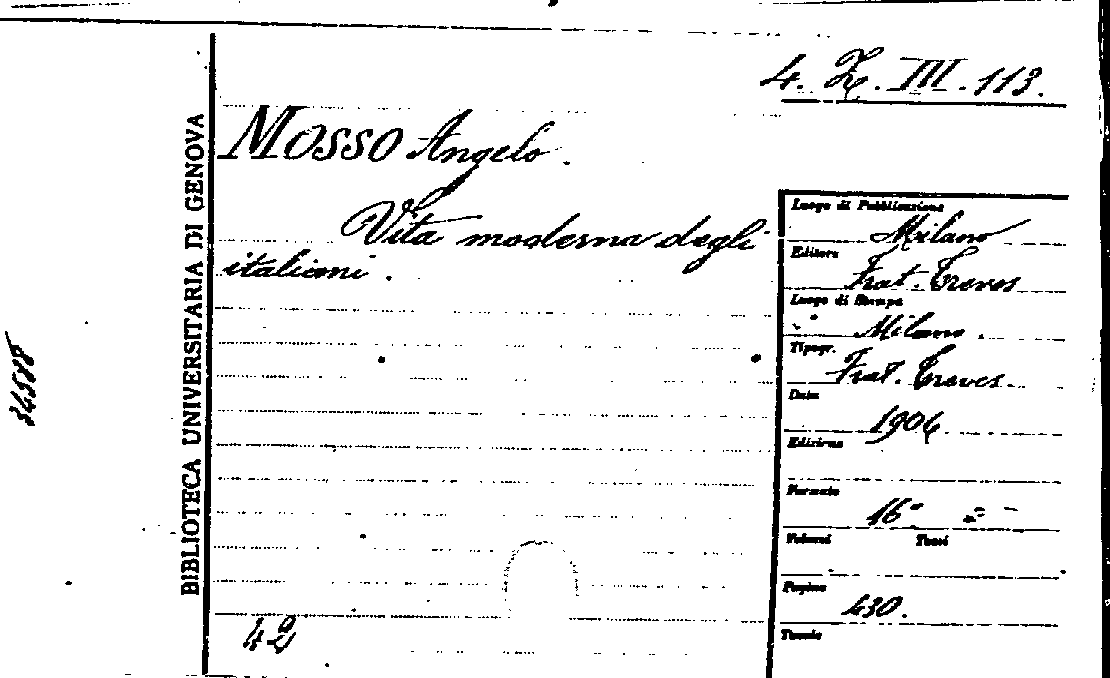 4. Z. III. 113.
MOSSO Angelo.
Vita moderna degli
italiani.
BIBLIOTECA UNIVERSITARIA DI GENOVA
34518
Luogo di Pubblicazione
Milano
Editore
Frat. Treves
Luogo di Stampa
Milano.
Tipogr.
Frat. Treves.
Data
1906
Edizione
Formato
16°
Volumi Tomi
Pagine
430.
Tavole
42